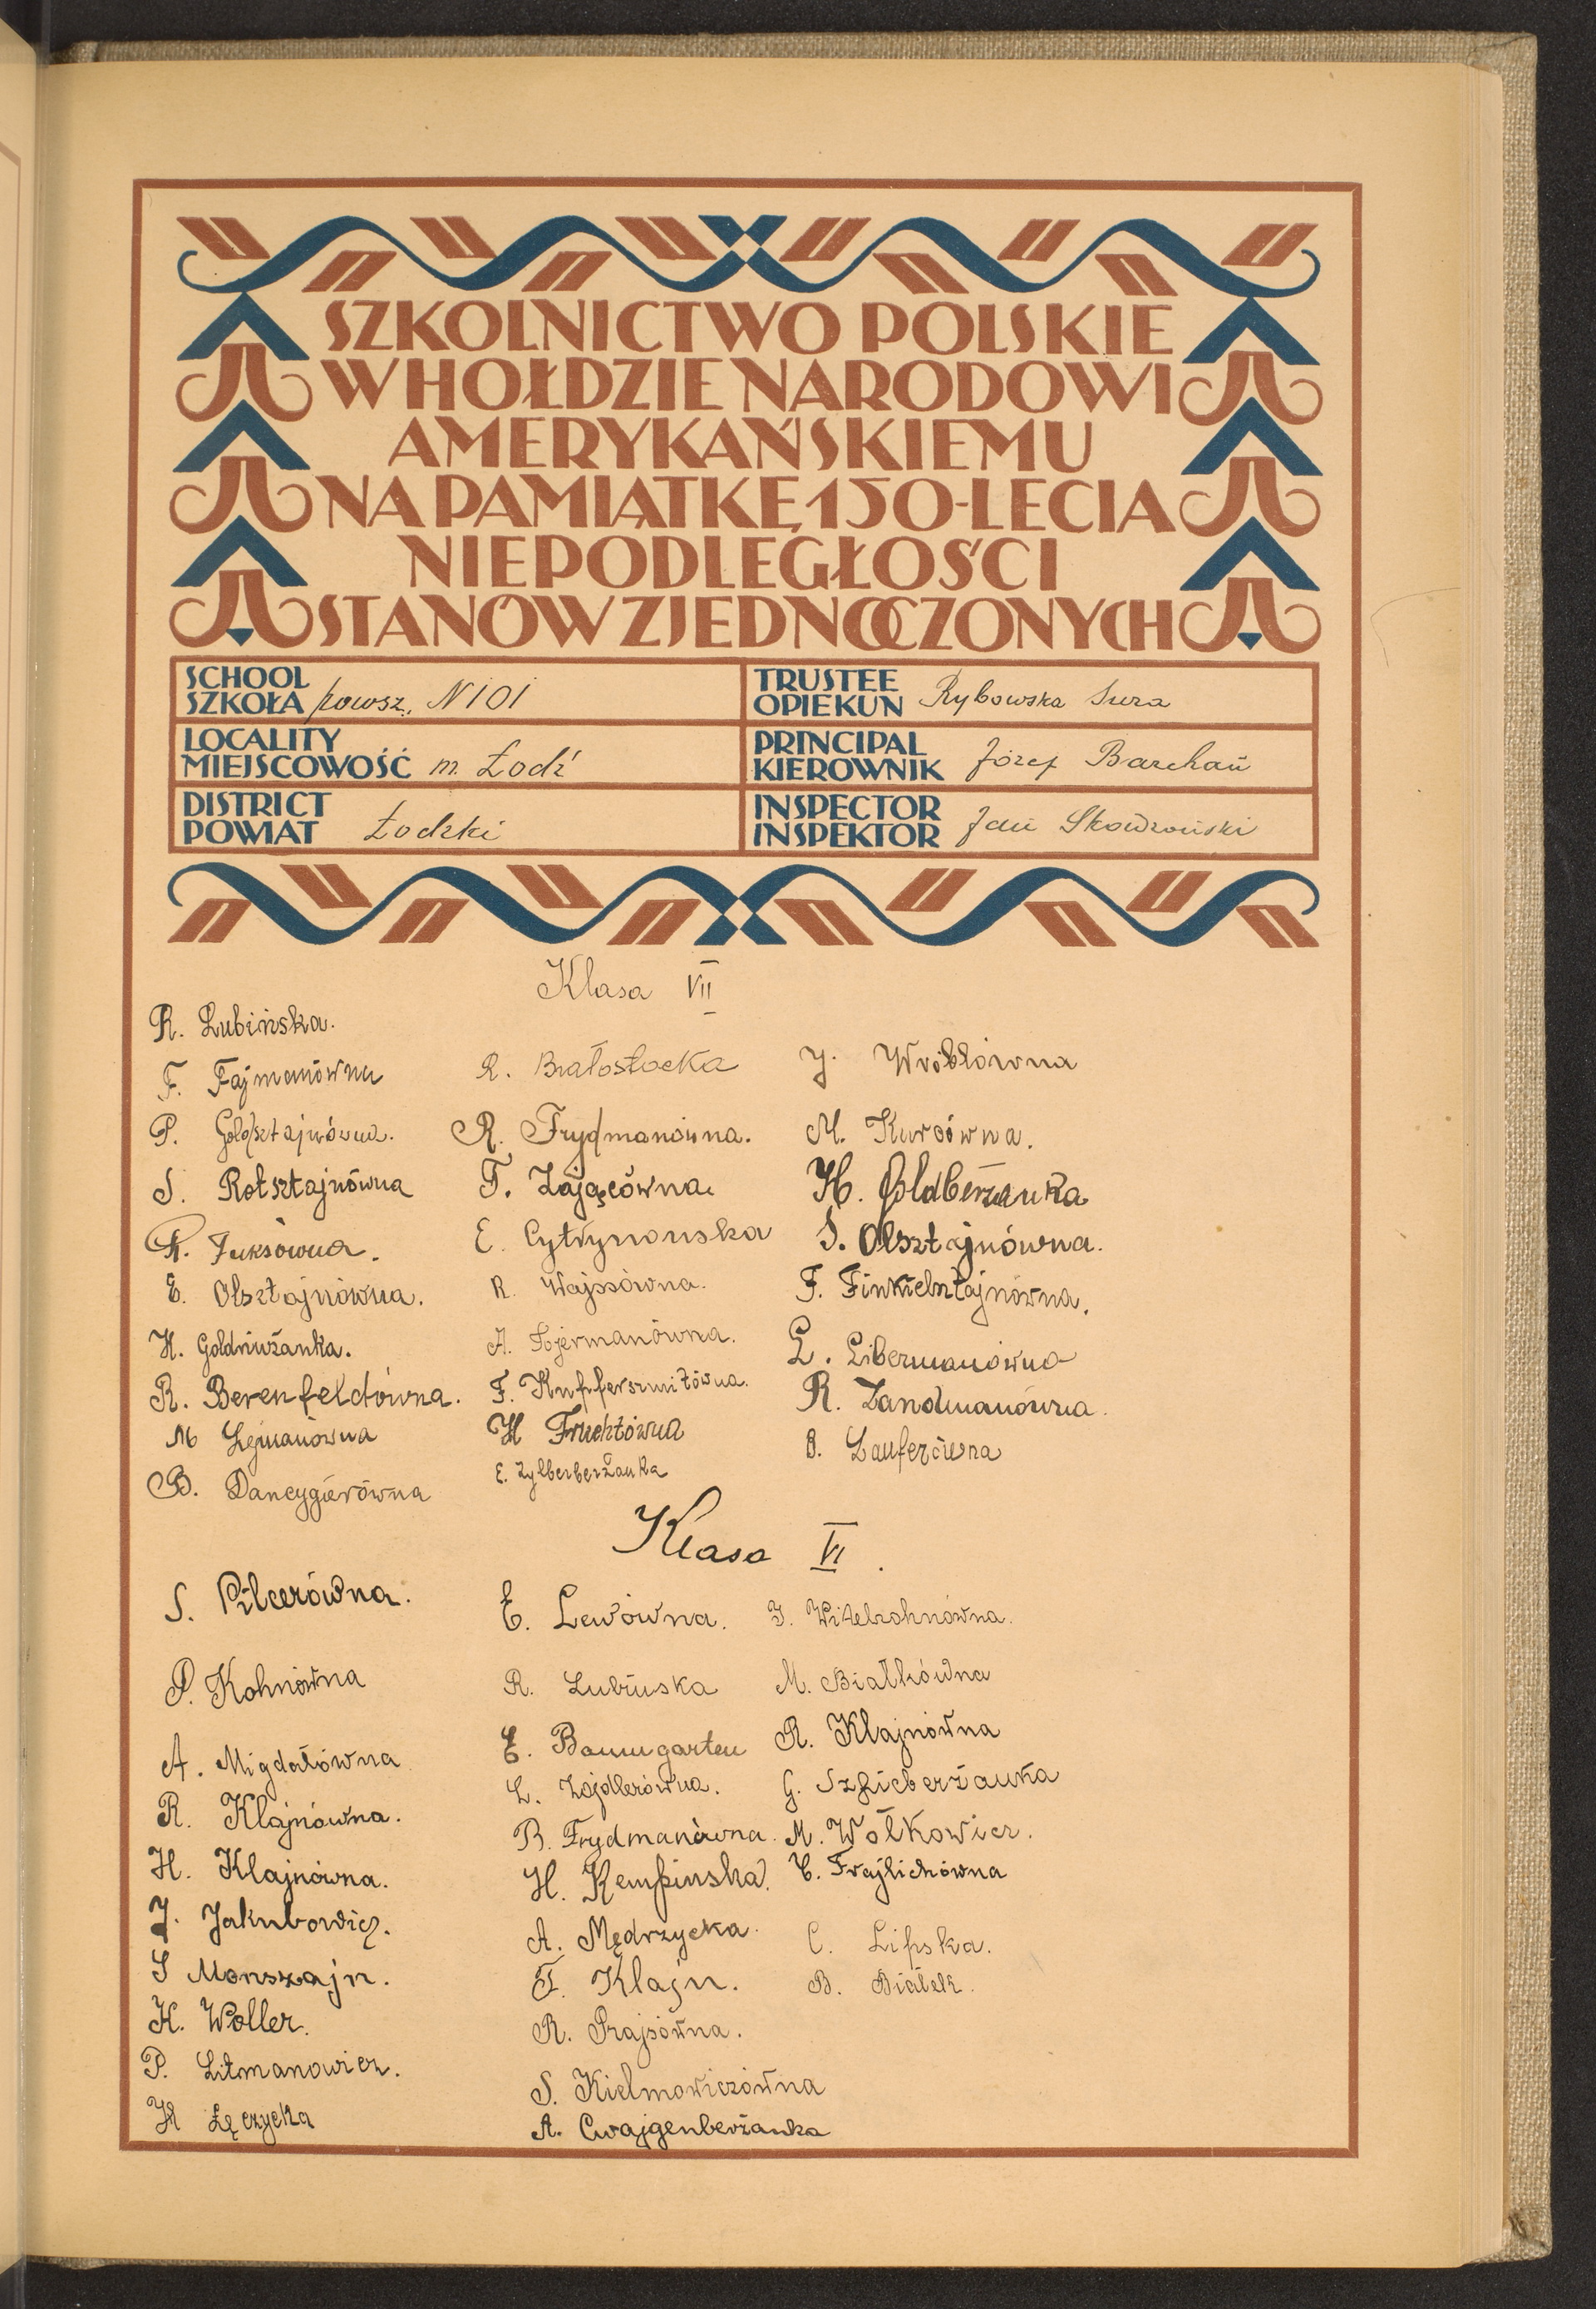 SZKOLNICTWO POLSKIE
W HOŁDZIE NARODOWI
AMERYKAŃSKIEMU
NA PAMIĄTKĘ 150-LECIA
NIEPODLEGŁOŚCI
STANÓW ZJEDNOCZONYCH
SCHOOL
SZKOŁA powsz. N 101
TRUSTEE
OPIEKUN Rybowska Sura
LOCALITY
MIEJSCOWOŚĆ m. Łodź
PRINCIPAL
KIEROWNIK Józef Barchań
DISTRICT
POWIAT Łodzki
INSPECTOR
INSPEKTOR Jan Skowroński
Klasa VII
R. Lubińska.
F. Fajmanówna
P. Goldsztajnówna.
S. Rotsztajnówna
R. Fuksówna.
E. Olsztajnówna.
H. Goldriużanka.
R. Berenfeldówna.
M Lejmanówna
B. Dancygierówna
R. Białostocka
R. Frydmanówna.
F. Zającówna.
E. Cytrynowska
R. Wajssówna.
A. Fojermanówna.
F. Kupferszmitówna.
H Fruchtówna
E. Zylberberżanka
J. Wróblówna
M. Kurcówna.
H. Goldberżanka
S. Olsztajnówna.
F. Finkielsztajnówna.
L. Libermanówna
R. Zandmanówna.
B. Lauferówna
Klasa VI.
S. Pilcerówna.
P. Kohnówna
A. Migdałówna
R. Klajnówna.
H. Klajnówna.
J. Jakubowicz.
S Monszajn.
K. Woller.
P. Litmanowicz.
H Łęczycka
E. Lewówna.
R. Lubińska
E. Baumgarten
L. Zajdlerówna.
B. Frydmanówna.
H. Kempinska.
A. Mędrzycka.
F. Klajn.
R. Prajsówna.
S. Kielmowiczówna
A. Cwajgenberżanka
J. Witelzohnówna.
M. Białkówna
R. Klajnówna
G. Szficberżanka
M. Wołkowicz.
C. Frajlichówna
C. Lipska.
B. Białek.